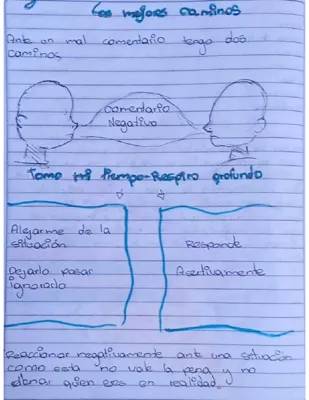 Los mejores caminos
Ante un mal comentario tengo dos
caminos
Comentario
Negativo
Tomo mi tiempo-Respiro profundo
Alejarme de la
situación
Dejarlo pasar
ignorarlo
Responde
Asertivamente
Reaccionar negativamente ante una situación
como esta no vale la pena y no
quien eres en realidad.